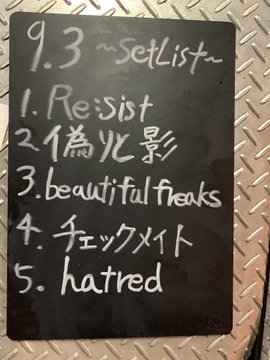 9.3 ~SetList~
1. Re:sist
2. 偽りと影
3. beautiful freaks
4. チェックメイト
5. hatred